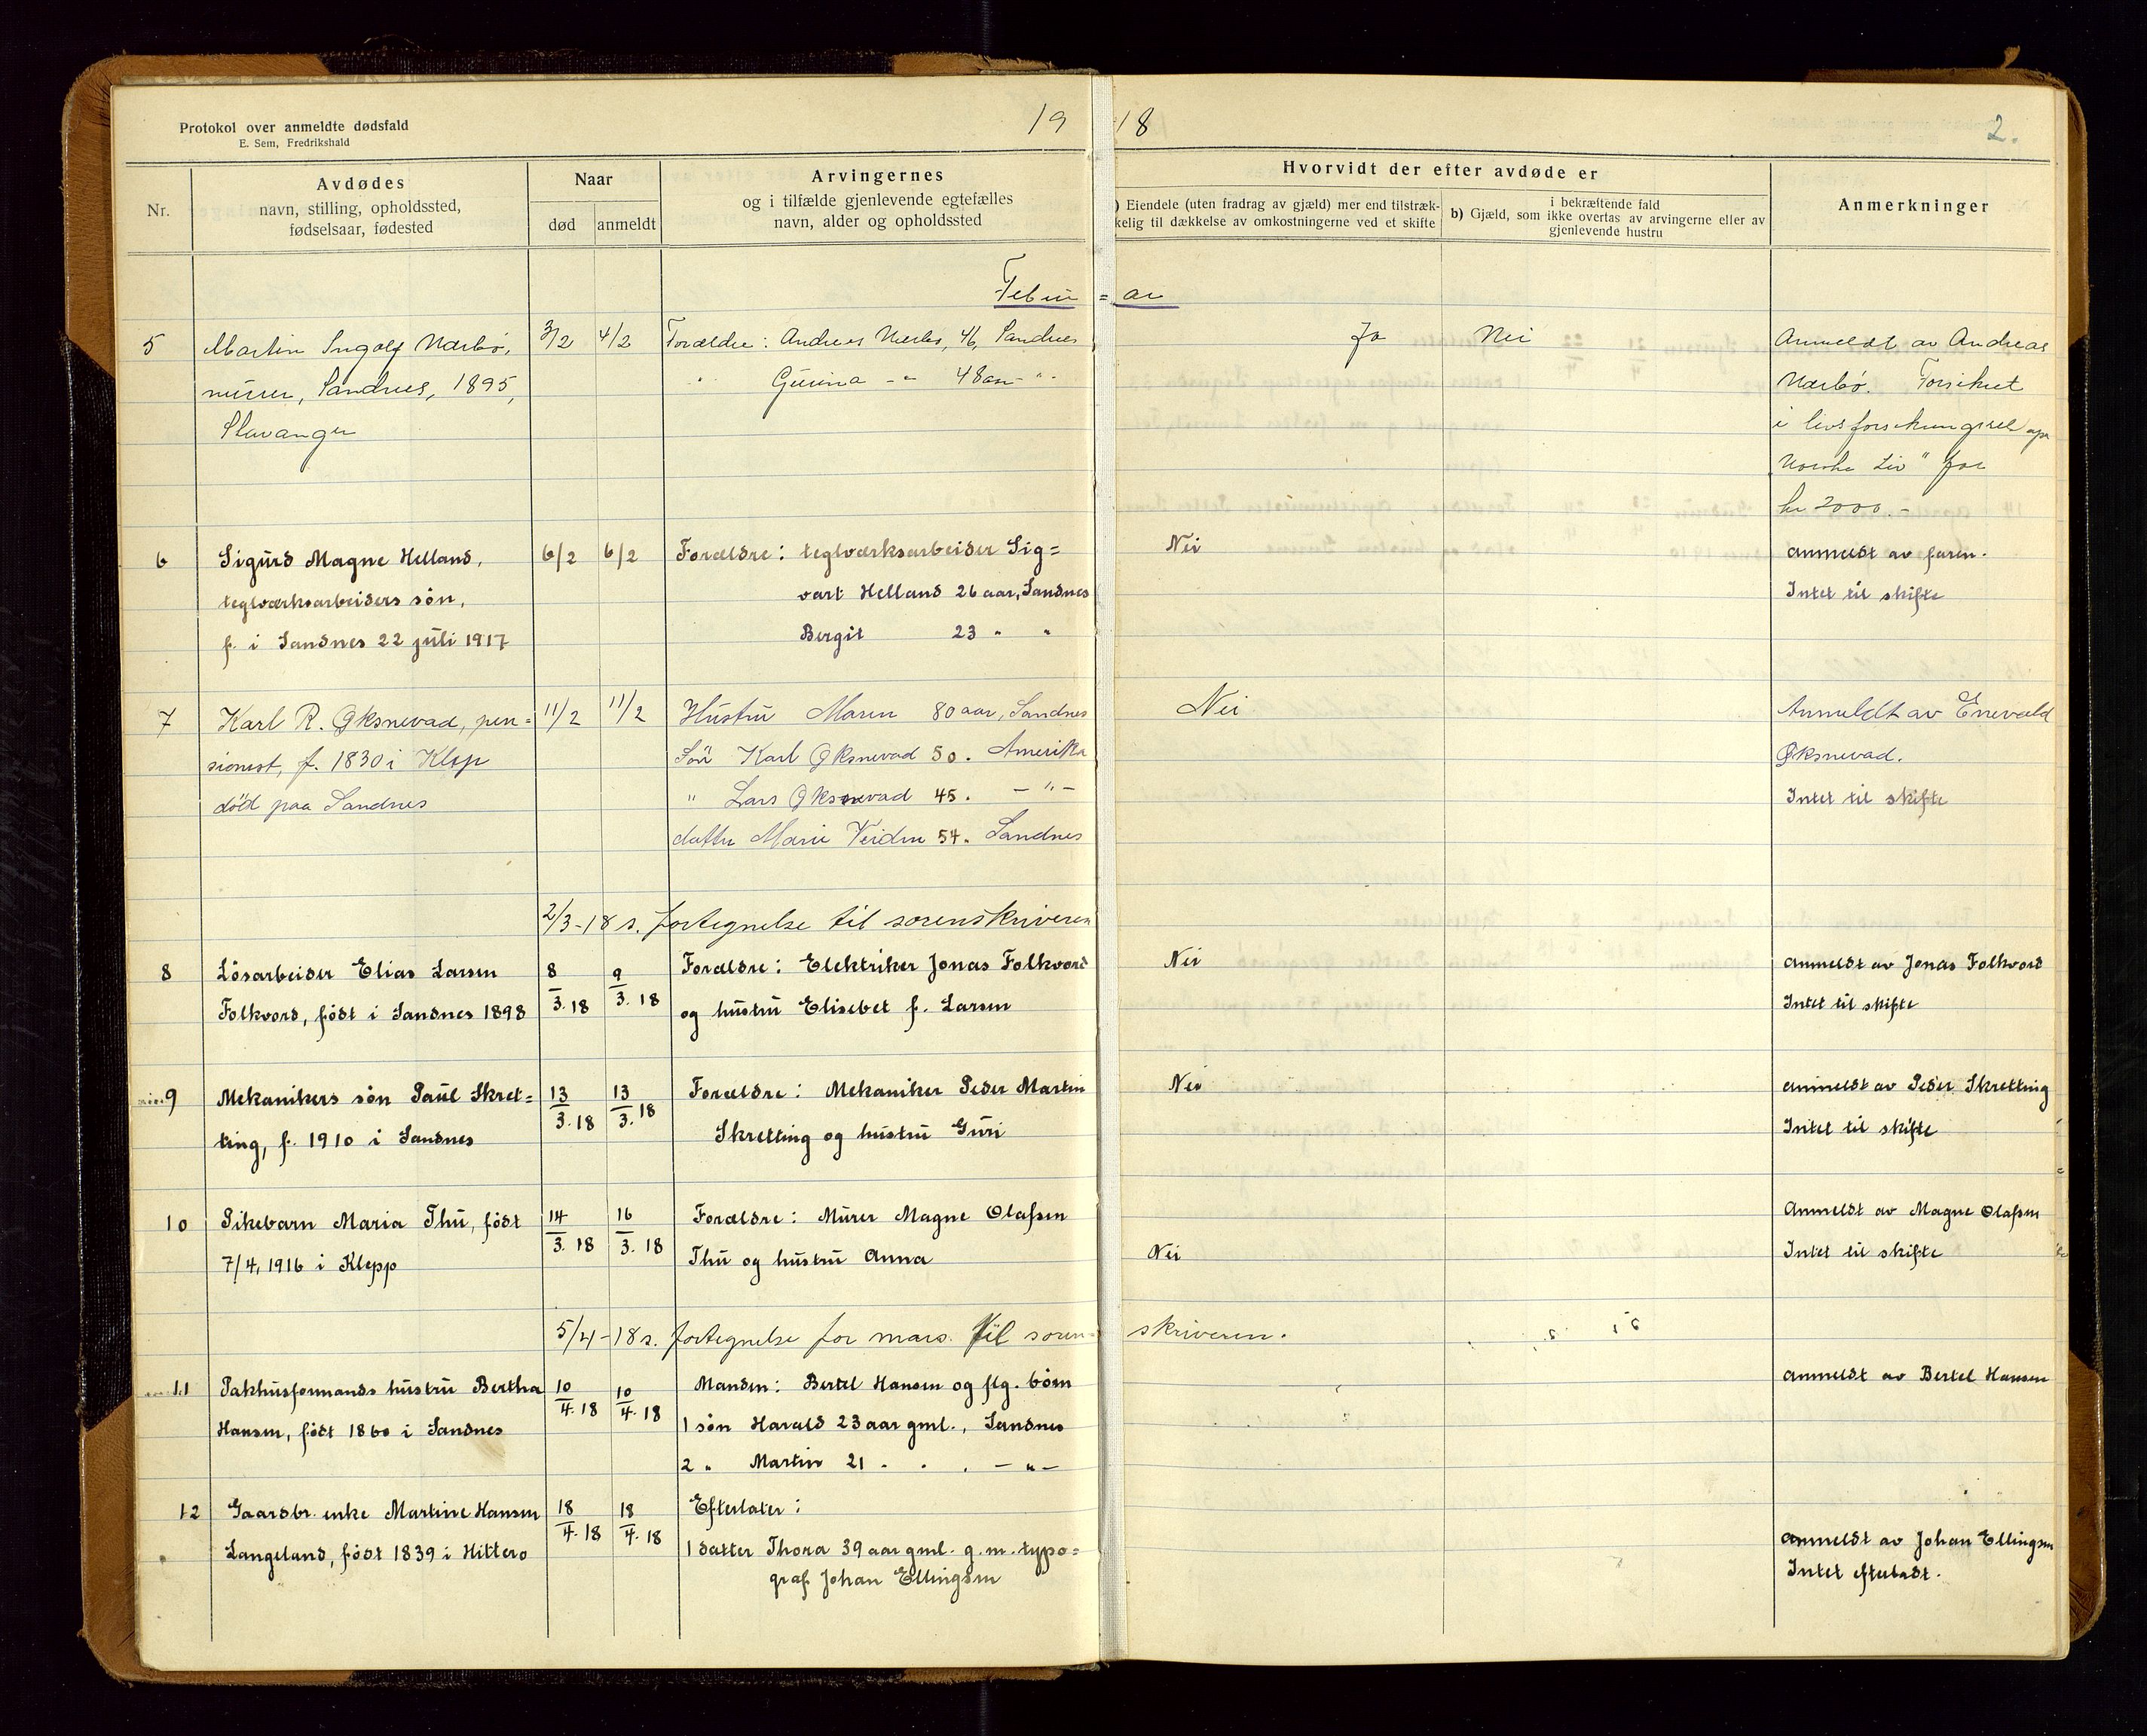 Protokol over anmeldte dødsfald
E. Sem, Fredrikshald
19 18
2.
Nr.
Avdødes
navn, stilling, opholdssted,
fødselsaar, fødested
Naar
død
anmeldt
Arvingernes
og i tilfælde gjenlevende egtefælles
navn, alder og opholdssted
Hvorvidt der efter avdøde er
) Eiendele (uten fradrag av gjæld) mer end tilstræk-
kelig til dækkelse av omkostningerne ved et skifte
i bekræftende fald
b) Gjæld, som ikke overtas av arvingerne eller av
gjenlevende hustru
Anmerkninger
Febru = ar
5
Martin Ingolf Nærbø,
murer, Sandnes, 1895,
Stavanger
3/2
4/2
Forældre: Andreas Nærbø, 46, Sandnes
" Gurina -"- 48 aar -"-
Ja
Nei
Anmeldt av Andreas
Nærbø. Forsikret
i livsforsikringssels
Norske Liv" for
kr 2000.-
6
Sigurd Magne Helland,
teglværksarbeiders søn,
f. i Sandnes 22 juli 1917
6/2
6/2
Forældre: teglværksarbeider Sig=
vart Helland 26 aar, Sandnes
Bergit 23 " "
Nei
anmeldt av faren.
Intet til skifte
7
Karl R. Øksnevad, pen=
sionist, f. 1830 i Klep
död paa Sandnes
11/2
11/2
Hustru Maren 80 aar, Sandnes
Sön Karl Øksnevad 50. Amerika
" Lars Øksnevad 45. -"-
datter Marie Veiden 54. Sandnes
Nei
Anmeldt av Enevald
Øksnevad.
Intet til skifte
2/3-18 s. fortegnelse til sorenskriveren
8
Løsarbeider Elias Larsen
Folkvord, født i Sandnes 1898
8/3. 18
9/3. 18
Forældre: Elektriker Jonas Folkvord
og hustru Elisebet f. Larsen
Nei
anmeldt av Jonas Folkvord
Intet til skifte
9
Mekanikers søn Paul Skret=
ting, f. 1910 i Sandnes
13/3. 18
13/3. 18
Forældre: Mekaniker Peder Martin
Skretting og hustru Guri
Nei
anmeldt av Peder Skretting
Intet til skifte
10
Pikebarn Maria Thu, født
7/4, 1916 i Klepp
14/3. 18
16/3. 18
Forældre: Murer Magne Olafsen
Thu og hustru Anna
Nei
Anmeldt av Magne Olafsen
Intet til skifte
5/4-18 s. fortegnelse for mars. til soren= skriveren.
11
Pakhusformands hustru Bertha
Hansen, født 1860 i Sandnes
10/4. 18
10/4. 18
Manden: Bertel Hansen og flg. børn
1 søn Harald 23 aar gml., Sandnes
2 " Martin 21 " " -"-
anmeldt av Bertel Hansen
12
Gaardbr. enke Martine Hansen
Langeland, født 1839 i Hittero
18/4. 18
18/4. 18
Efterlater:
1 datter Thora 39 aar gml. g. m. typo=
graf Johan Ellingsen
anmeldt av Johan Ellingsen
Intet efterladt.